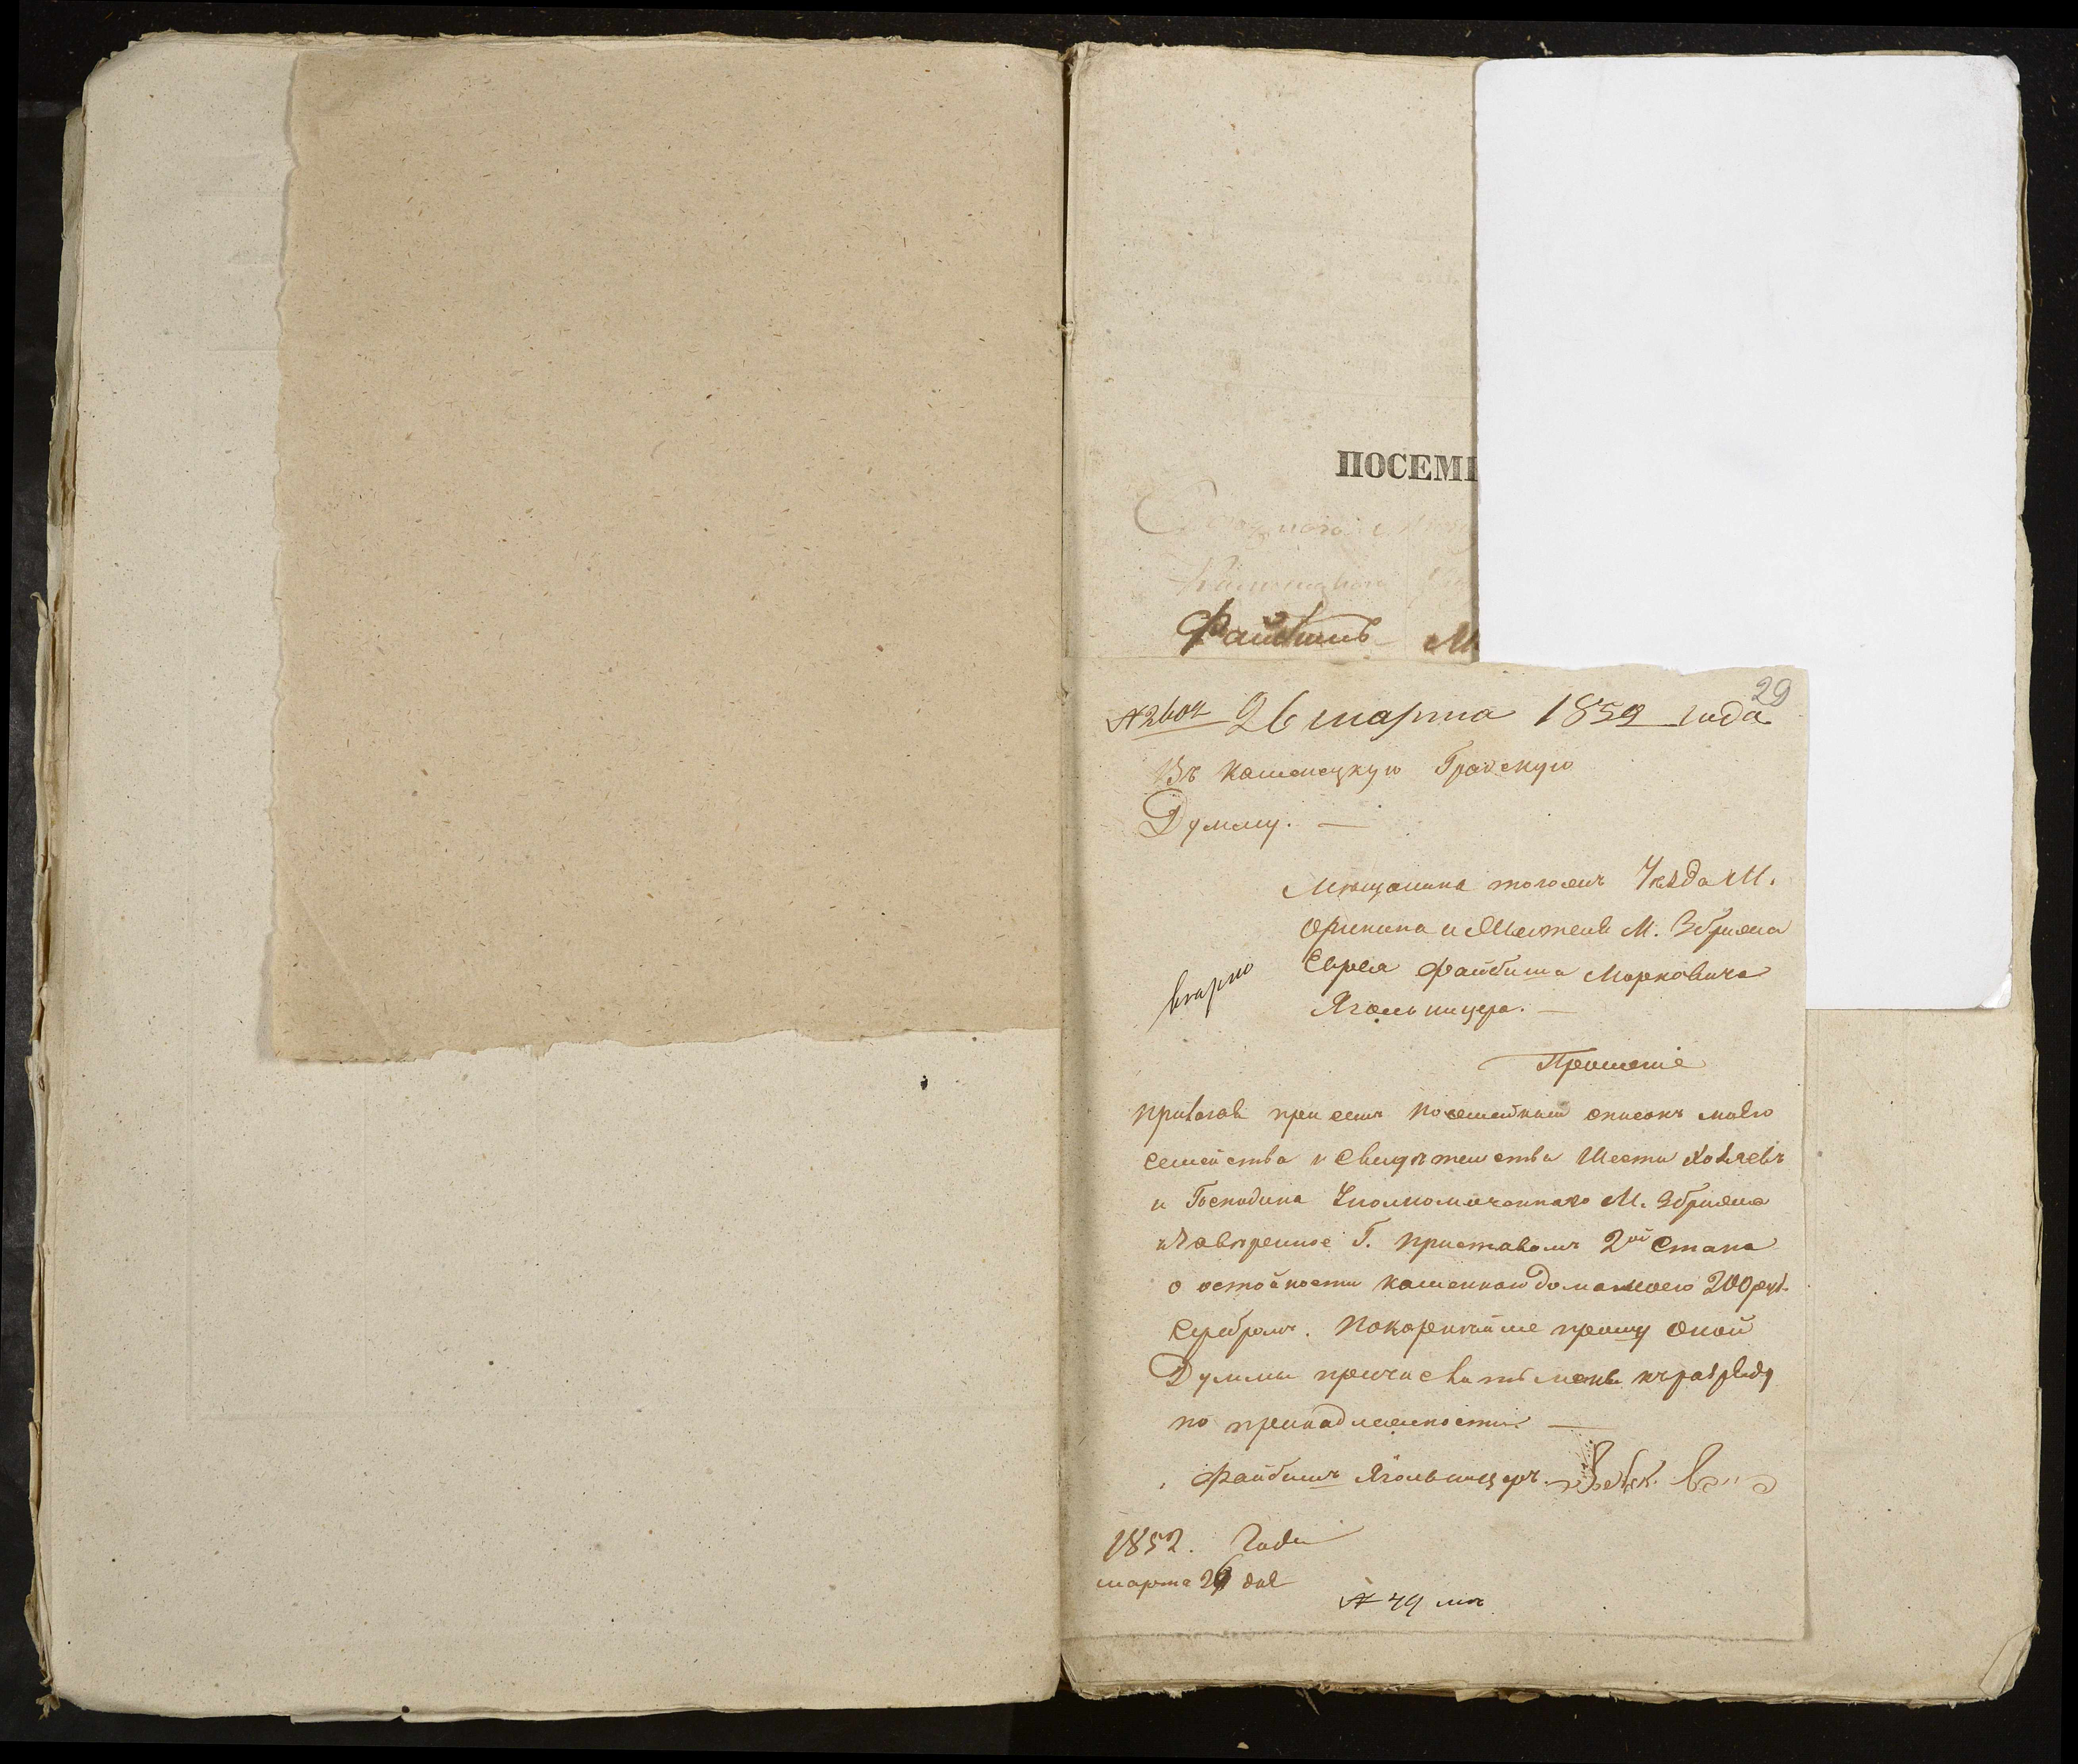 ПОСЕМ
Файбишъ М
29
№2602 26 марта 1852 года
Въ Каменецкую Градскую
Думу. —
Мѣщанина тогожъ Уезда М.
Оринина и Жителя М. Збрижа
Еврея Файбиша Марковича
Ягольницера. —
Прошеніе
прилагая при семъ посемейный списокъ моего
семейства и Свидѣтельства Шести Хозяевъ
и Господина Уполномоченнаго М. Збрижа
Завѣренное Г. приставомъ 2ой Стана
о стойности каменнаго дома моего 200 руб.
Серебромъ. Покорнейше прошу оной
Думы причислить меня къ разряду
по принадлежности —
Файбишъ Ягольницеръ.
1852. Года
марта 26 дня
№ 49